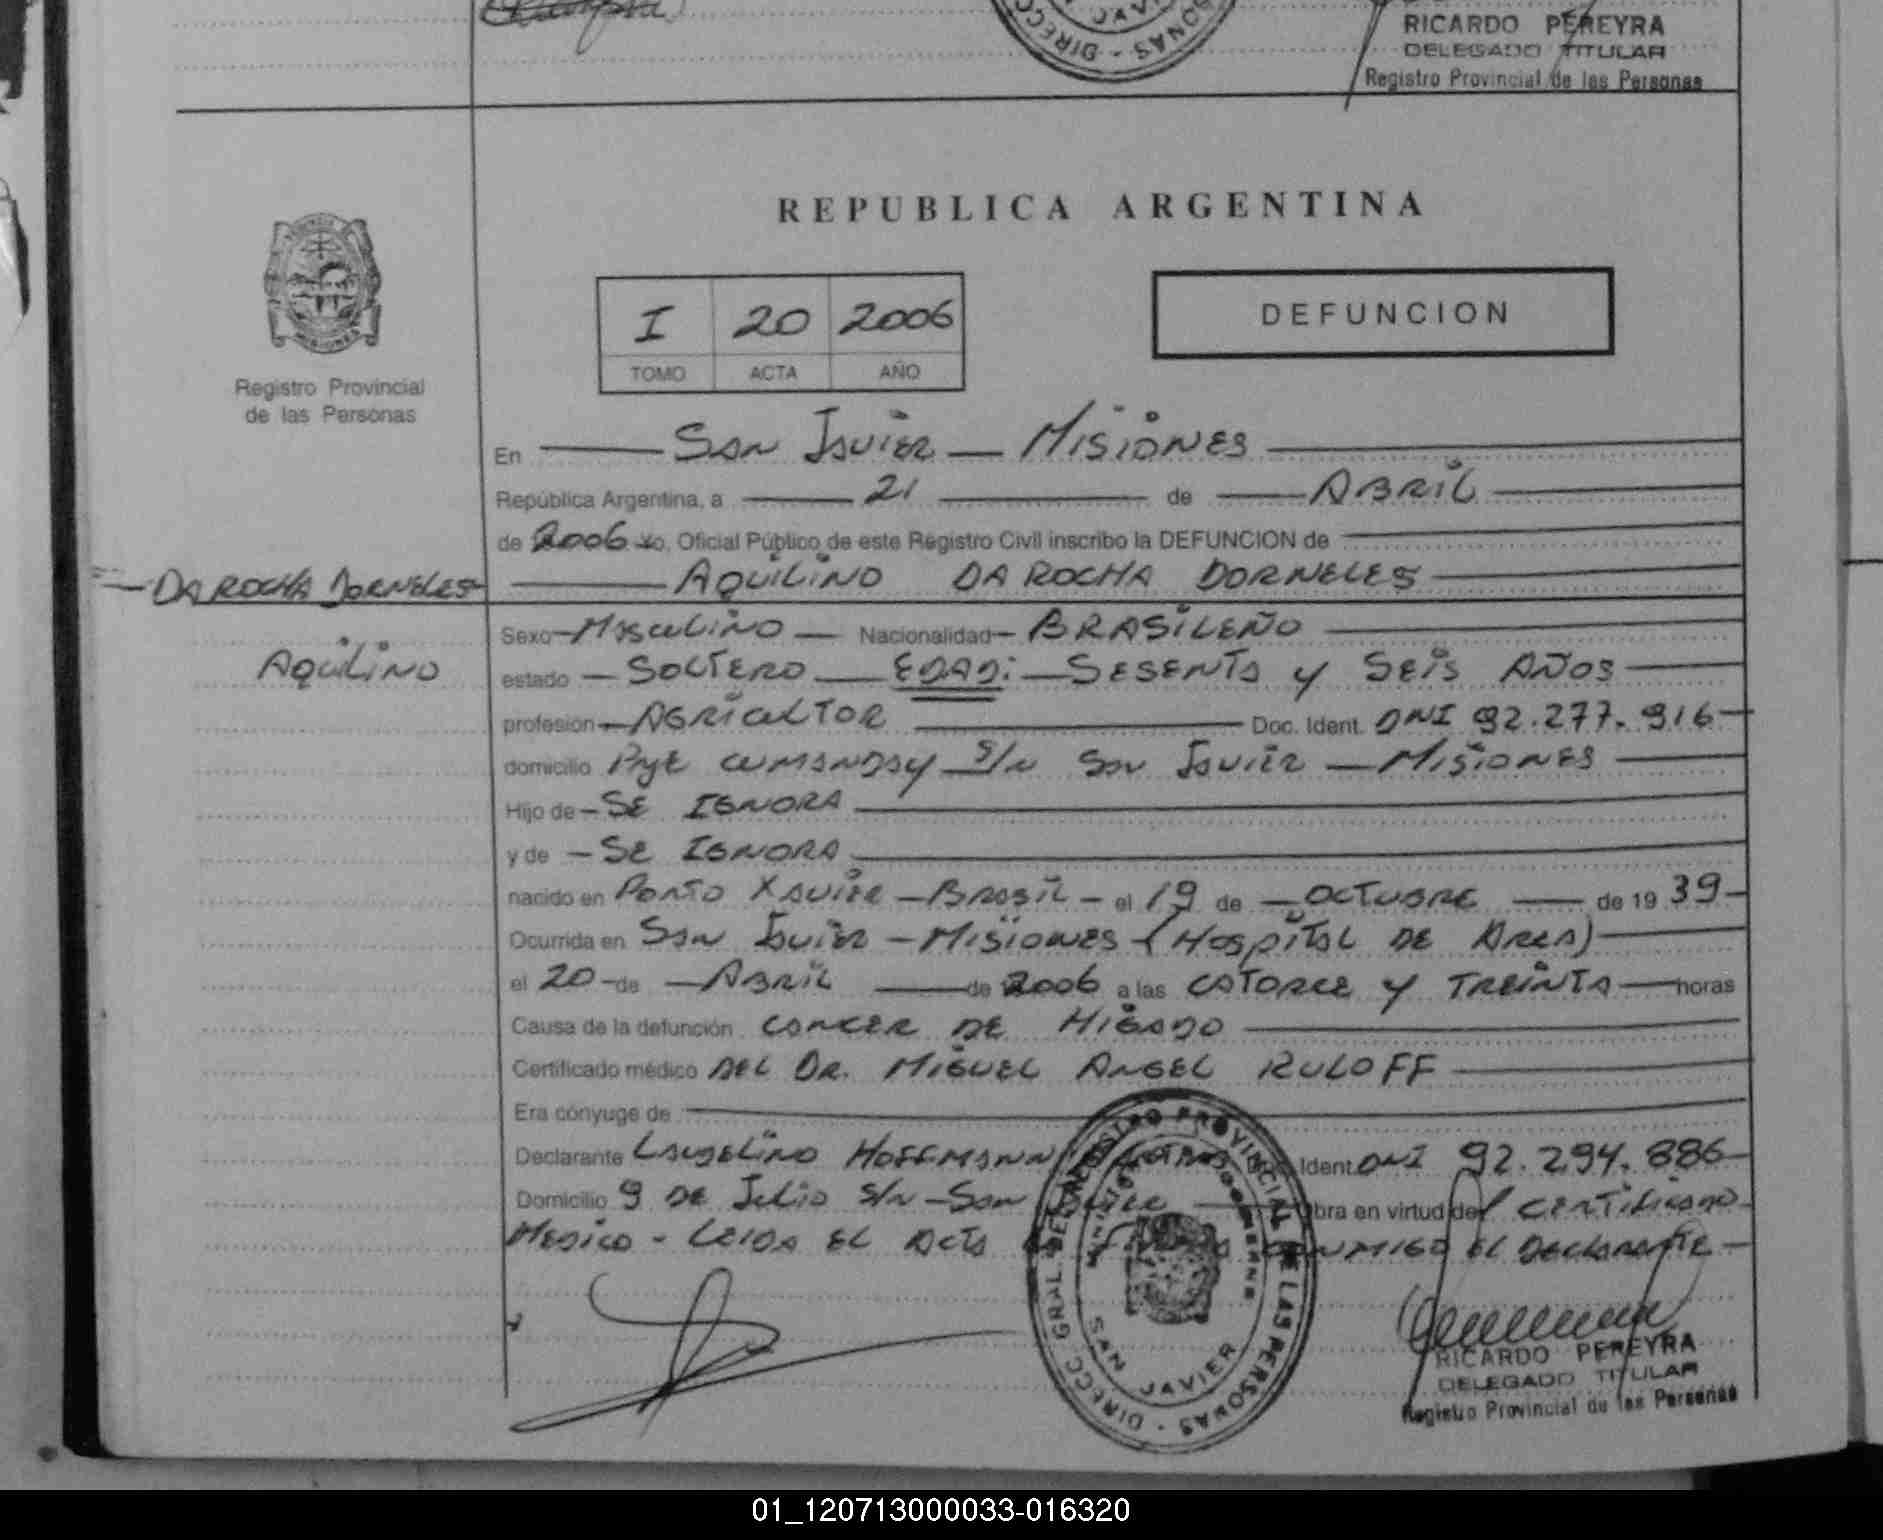 RICARDO PEREYRA
DELEGADO TITULAR
Registro Provincial de las Personas
REPUBLICA ARGENTINA
I 20 2006
TOMO ACTA AÑO
DEFUNCION
Registro Provincial
de las Personas
En SAN JAVIER - MISIONES
República Argentina, a 21 de ABRIL
de 2006 Yo, Oficial Público de este Registro Civil inscribo la DEFUNCION de
DA ROCHA DORNELES
AQUILINO DA ROCHA DORNELES
Sexo MASCULINO Nacionalidad BRASILEÑO
AQUILINO
estado SOLTERO EDAD: SESENTA y SEIS AÑOS
profesión AGRICULTOR Doc. Ident. DNI 92.277.916
domicilio Pje CUMANDAY S/N SAN JAVIER - MISIONES
Hijo de SE IGNORA
y de SE IGNORA
nacido en PORTO XAVIER - BRASIL - el 19 de OCTUBRE de 1939
Ocurrida en SAN JAVIER - MISIONES (HOSPITAL DE AREA)
el 20 de ABRIL de 2006 a las CATORCE y TREINTA horas
Causa de la defunción CANCER DE HIGADO
Certificado médico DEL DR. MIGUEL ANGEL RULOFF
Era cónyuge de
Declarante LAUDELINO HOFFMANN Doc. Ident. DNI 92.294.886
Domicilio 9 DE JULIO S/N - SAN JAVIER Obra en virtud del CERTIFICADO
MEDICO - LEIDA EL ACTA CONMIGO EL DECLARANTE
DIRECC. GRAL. DEL REGISTRO PROVINCIAL DE LAS PERSONAS
MINISTERIO DE GOBIERNO
SAN JAVIER
RICARDO PEREYRA
DELEGADO TITULAR
Registro Provincial de las Personas
01_120713000033-016320